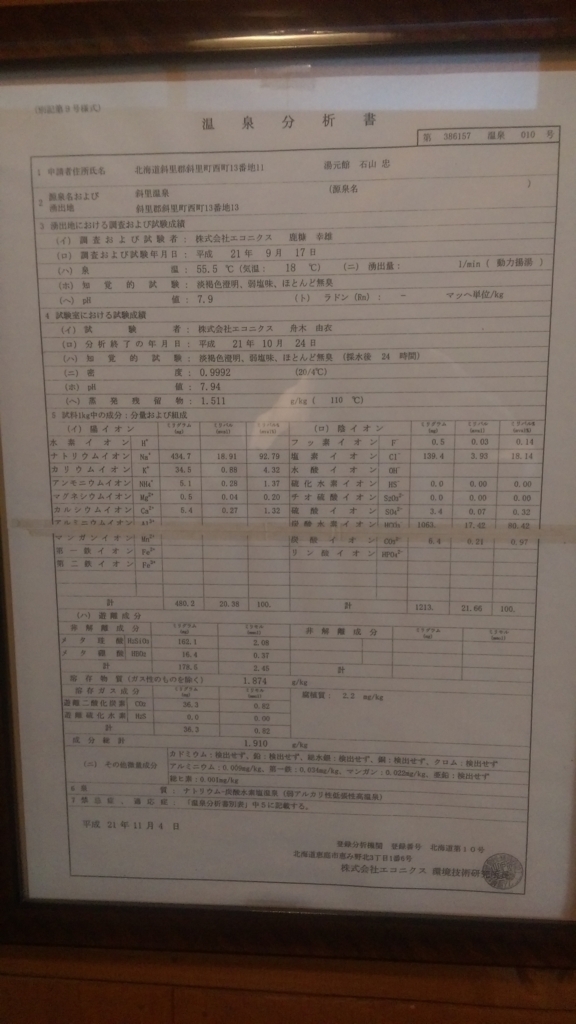 (別記第9号様式)
温泉分析書
第 386157 温泉 010 号
1 申請者住所氏名 北海道斜里郡斜里町西町13番地11 湯元館 石山 忠
2 源泉名および湧出地 斜里温泉 (源泉名 )
斜里郡斜里町西町13番地13
3 湧出地における調査および試験成績
(イ) 調査および試験者: 株式会社エコニクス 鹿糠 幸雄
(ロ) 調査および試験年月日: 平成 21年 9月 17日
(ハ) 泉温: 55.5 ℃ (気温: 18 ℃) (ニ) 湧出量: l/min ( 動力揚湯 )
(ホ) 知覚的試験: 淡褐色澄明、弱塩味、ほとんど無臭
(ヘ) pH値: 7.9 (ト) ラドン(Rn): - マッヘ単位/kg
4 試験室における試験成績
(イ) 試験者: 株式会社エコニクス 舟木 由衣
(ロ) 分析終了の年月日: 平成 21年 10月 24日
(ハ) 知覚的試験: 淡褐色澄明、弱塩味、ほとんど無臭 (採水後 24 時間)
(ニ) 密度: 0.9992 (20/4℃)
(ホ) pH値: 7.94
(ヘ) 蒸発残留物: 1.511 g/kg ( 110 ℃)
5 試料1kg中の成分:分量および組成
(イ) 陽イオン ミリグラム (mg) ミリバル (mval) ミリバル% (mval%) (ロ) 陰イオン ミリグラム (mg) ミリバル (mval) ミリバル% (mval%)
水素イオン H⁺ フッ素イオン F⁻ 0.5 0.03 0.14
ナトリウムイオン Na⁺ 434.7 18.91 92.79 塩素イオン Cl⁻ 139.4 3.93 18.14
カリウムイオン K⁺ 34.5 0.88 4.32 水酸イオン OH⁻
アンモニウムイオン NH₄⁺ 5.1 0.28 1.37 硫化水素イオン HS⁻ 0.0 0.00 0.00
マグネシウムイオン Mg²⁺ 0.5 0.04 0.20 チオ硫酸イオン S₂O₃²⁻ 0.0 0.00 0.00
カルシウムイオン Ca²⁺ 5.4 0.27 1.32 硫酸イオン SO₄²⁻ 3.4 0.07 0.32
アルミニウムイオン Al³⁺ 炭酸水素イオン HCO₃⁻ 1063. 17.42 80.42
マンガンイオン Mn²⁺ 炭酸イオン CO₃²⁻ 6.4 0.21 0.97
第一鉄イオン Fe²⁺ リン酸イオン HPO₄²⁻
第二鉄イオン Fe³⁺
計 480.2 20.38 100. 計 1213. 21.66 100.
(ハ) 遊離成分
非解離成分 ミリグラム (mg) ミリモル (mmol) 非解離成分 ミリグラム (mg) ミリモル (mmol)
メタケイ酸 H₂SiO₃ 162.1 2.08
メタホウ酸 HBO₂ 16.4 0.37
計 178.5 2.45 計
溶存物質(ガス性のものを除く) 1.874 g/kg
溶存ガス成分 ミリグラム (mg) ミリモル (mmol) 腐植質: 2.2 mg/kg
遊離二酸化炭素 CO₂ 36.3 0.82
遊離硫化水素 H₂S 0.0 0.00
計 36.3 0.82
成分総計 1.910 g/kg
(ニ) その他微量成分 カドミウム:検出せず、鉛:検出せず、総水銀:検出せず、銅:検出せず、クロム:検出せず
アルミニウム:0.009mg/kg、第一鉄:0.034mg/kg、マンガン:0.022mg/kg、亜鉛:検出せず
総ヒ素:0.001mg/kg
6 泉質: ナトリウム-炭酸水素塩温泉(弱アルカリ性低張性高温泉)
7 禁忌症、適応症: 「温泉分析書別表」中5に記載する。
平成 21年 11月 4日
登録分析機関 登録番号 北海道第10号
北海道恵庭市恵み野北3丁目1番6号
株式会社エコニクス 環境技術研究所